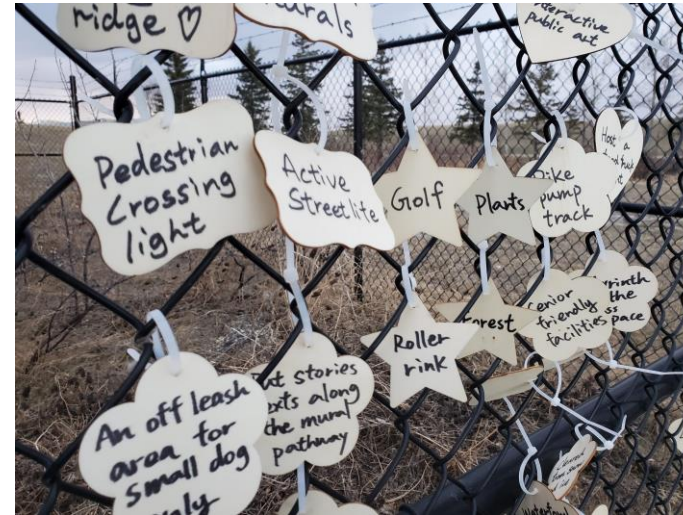 ridge ♡
murals
interactive
public art
Pedestrian
Crossing
light
Active
Streetlife
Golf
Plants
Bike
pump
track
Host a
food truck
Roller
rink
Forest
Senior
friendly
facilities
the
An off leash
area for
small dog
only
stories
along
the mural
pathway